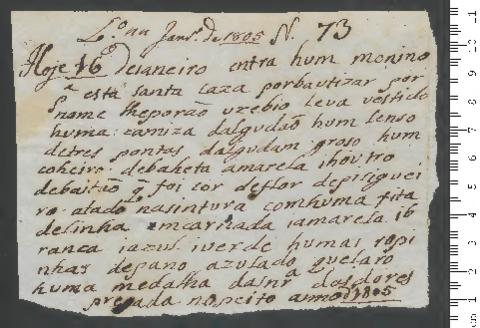 L.º nu Janr.º de 1805 N. 73
Hoje 16 deianeiro entra hum monino
p.ª está santa caza porbautizar por
nome lheporão uzebio leva vestido
huma camiza dalgudaõ hum lenso
detres pontas dalgudam groso hum
coheiro debaheta amarela ihoutro
debaitaõ q̃ foi cor deflor depisiguei
ro atado nasintura comhuma fita
delinha emcarnada iamarela ib
ranca iazul iverde humas ropi
nhas depano azulado
huma medalha dasnrª dasdores
pregada nopeito annod 1805
10 9 8 7 6 5 4 3 2 1